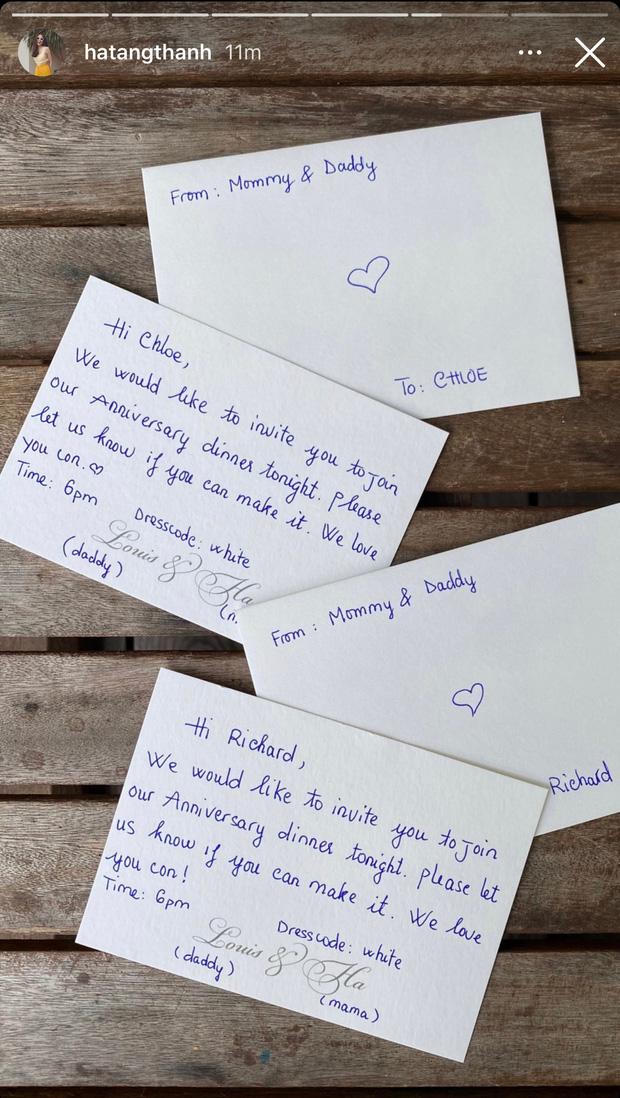 hatangthanh 11m
From: Mommy & Daddy
To: CHLOE
Hi Chloe,
We would like to invite you to join
our Anniversary dinner tonight. Please
let us know if you can make it. We love
you con.
Time: 6pm
Dresscode: white
Louis & Ha
(daddy)
From: Mommy & Daddy
Richard
Hi Richard,
We would like to invite you to join
our Anniversary dinner tonight. Please let
us know if you can make it. We love
you con!
Time: 6pm
Dresscode: white
Louis & Ha
(daddy)
(mama)